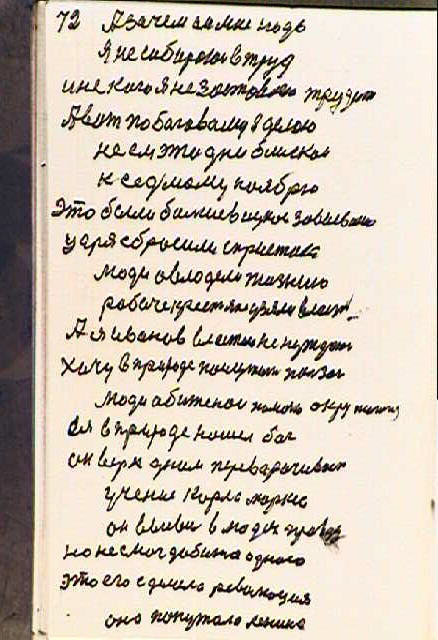 72 А зачем за мне людь
я не собираюсь в труд
и не кого я не заставляю трудит
А вот по базовалу я делаю
не ем эта дни близкая
к седмому ноябрю
это было большевицкое завоевание
царя сбросили с престола
люди овладели жизнию
рабочекрестяня узяли власть
А я иванов власти не нуждаюсь
хочу в природе получить
люди обиженой окружили
я в природе нашел бог
он верх дном переварачивает
учение Карла маркса
он в людях правду
но не смог добится одного
это его сделала революция
она попутала ленина